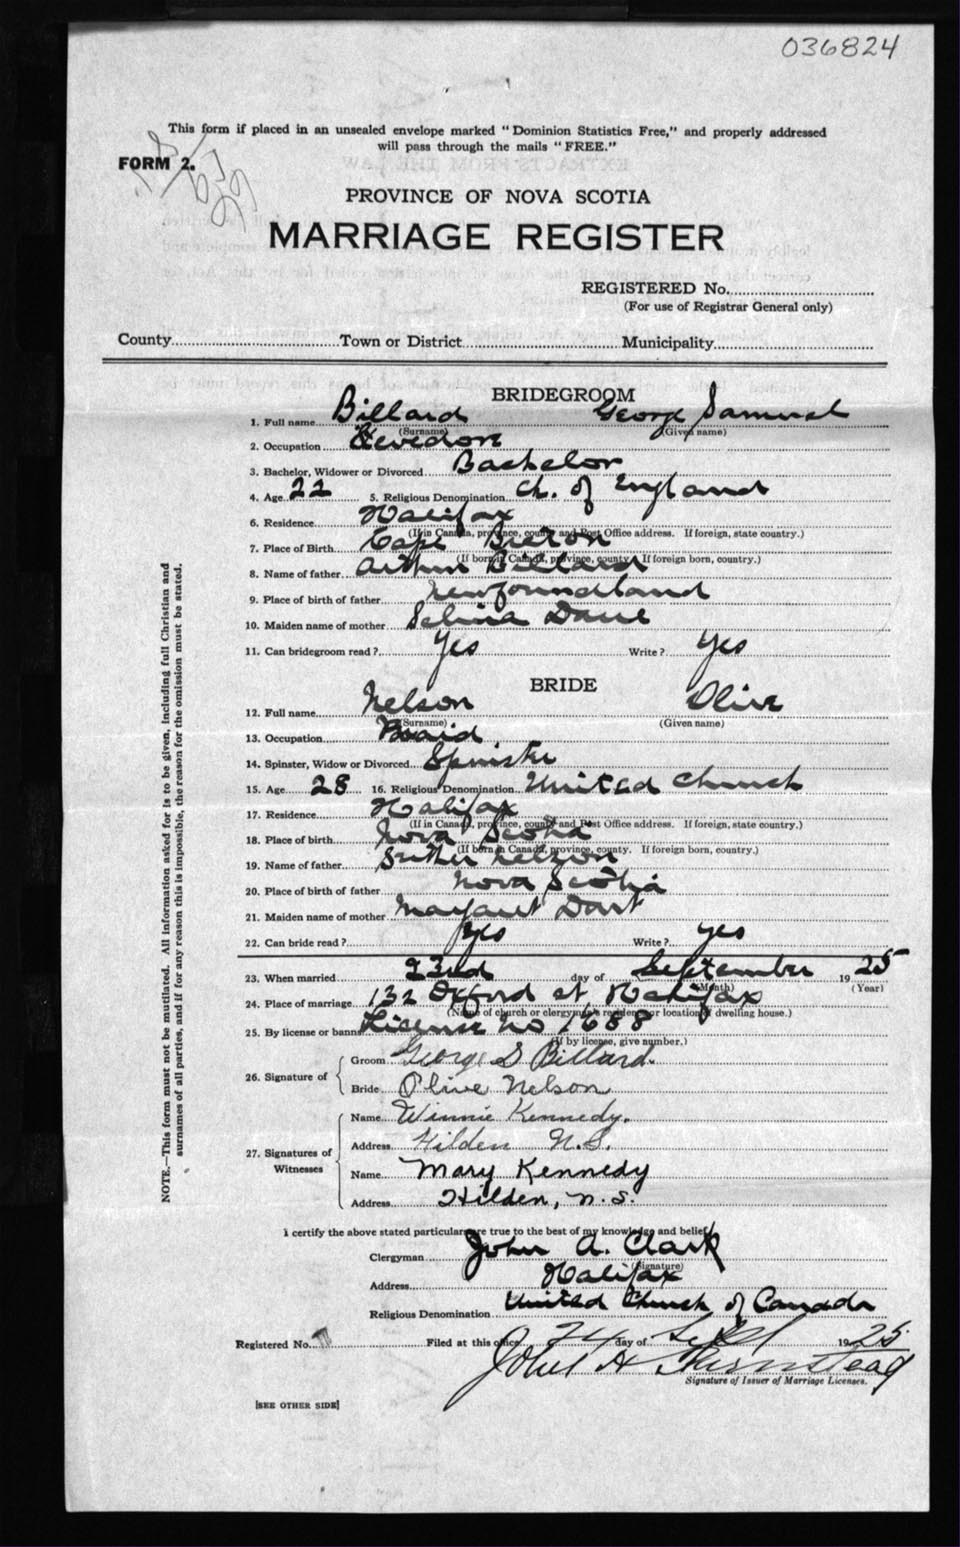 036824
This form if placed in an unsealed envelope marked "Dominion Statistics Free," and properly addressed
will pass through the mails "FREE."
FORM 2.
PROVINCE OF NOVA SCOTIA
MARRIAGE REGISTER
REGISTERED No.
(For use of Registrar General only)
County Town or District Municipality
BRIDEGROOM
1. Full name Billard George Samuel
(Surname) (Given name)
2. Occupation
3. Bachelor, Widower or Divorced Bachelor
4. Age 22 5. Religious Denomination Ch. of England
6. Residence Halifax
(If in Canada, province, county and Post Office address. If foreign, state country.)
7. Place of Birth Cape Breton
(If born in Canada, province, county. If foreign born, country.)
8. Name of father Arthur Billard
9. Place of birth of father Newfoundland
10. Maiden name of mother Selina
11. Can bridegroom read? Yes Write? Yes
BRIDE
12. Full name Nelson Olive
(Surname) (Given name)
13. Occupation Maid
14. Spinster, Widow or Divorced Spinster
15. Age 28 16. Religious Denomination United Church
17. Residence Halifax
(If in Canada, province, county and Post Office address. If foreign, state country.)
18. Place of birth Nova Scotia
(If born in Canada, province, county. If foreign born, country.)
19. Name of father Nelson
20. Place of birth of father Nova Scotia
21. Maiden name of mother Margaret Dart
22. Can bride read? Yes Write? Yes
23. When married 23rd day of September 1925
(Month) (Year)
24. Place of marriage 132 Oxford st, Halifax
(Name of church or clergyman's residence or location of dwelling house.)
25. By license or banns License No 1688
(If by license, give number.)
26. Signature of
Groom George S Billard.
Bride Olive Nelson
27. Signatures of Witnesses
Name Winnie Kennedy.
Address Hilden N.S.
Name Mary Kennedy
Address Hilden, N.S.
I certify the above stated particulars are true to the best of my knowledge and belief.
Clergyman John A. Clark
(Signature)
Address Halifax
Religious Denomination United Church of Canada
Registered No. Filed at this office 24 day of Sept 1925
John H
Signature of Issuer of Marriage Licenses.
[SEE OTHER SIDE]
NOTE.—This form must not be mutilated. All information asked for is to be given, including full Christian and
surnames of all parties, and if for any reason this is impossible, the reason for the omission must be stated.